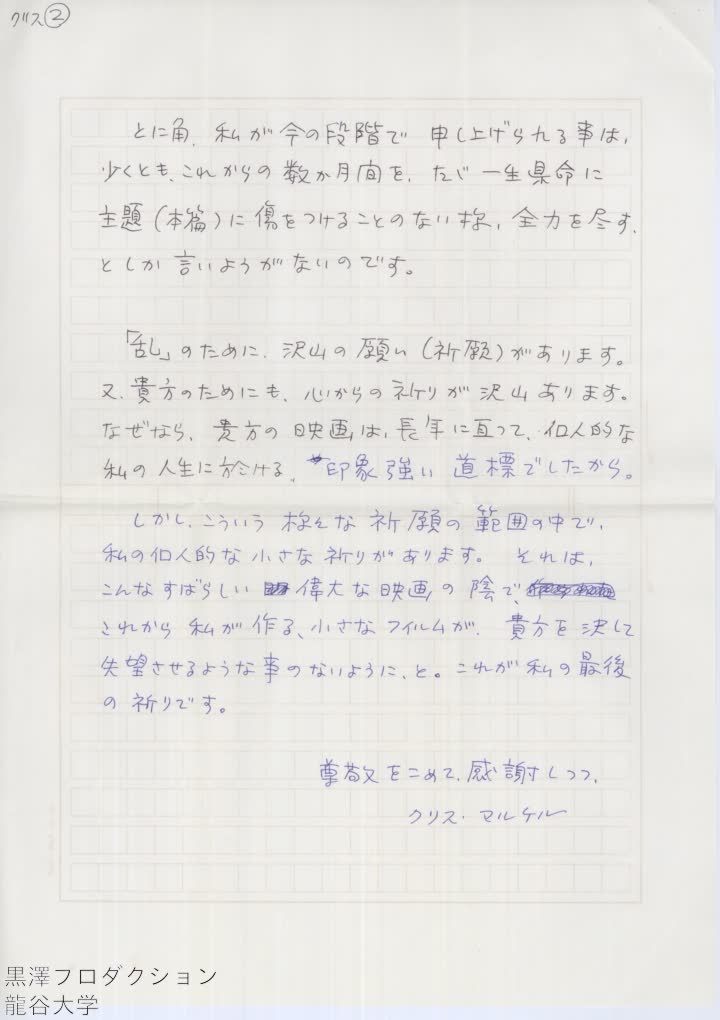 クリス②
とに角、私が今の段階で 申し上げられる事は、
少くとも、これからの数か月間を、ただ一生県命に
主題(本篇)に傷をつけることのない様、全力を尽す、
としか言いようがないのです。
「乱」のために、沢山の願い(祈願)があります。
又、貴方のためにも、心からの祈りが沢山あります。
なぜなら、貴方の映画は、長年に亘って、個人的な
私の人生に於ける、印象強い道標でしたから。
しかし、こういう様々な祈願の範囲の中で、
私の個人的な小さな祈りがあります。それは、
こんなすばらしい 偉大な映画の陰で、
これから私が作る、小さなフイルムが、貴方を決して
失望させるような事のないように、と。これが私の最後
の祈りです。
尊敬をこめて、感謝しつつ、
クリス・マルケル
黒澤プロダクション
龍谷大学